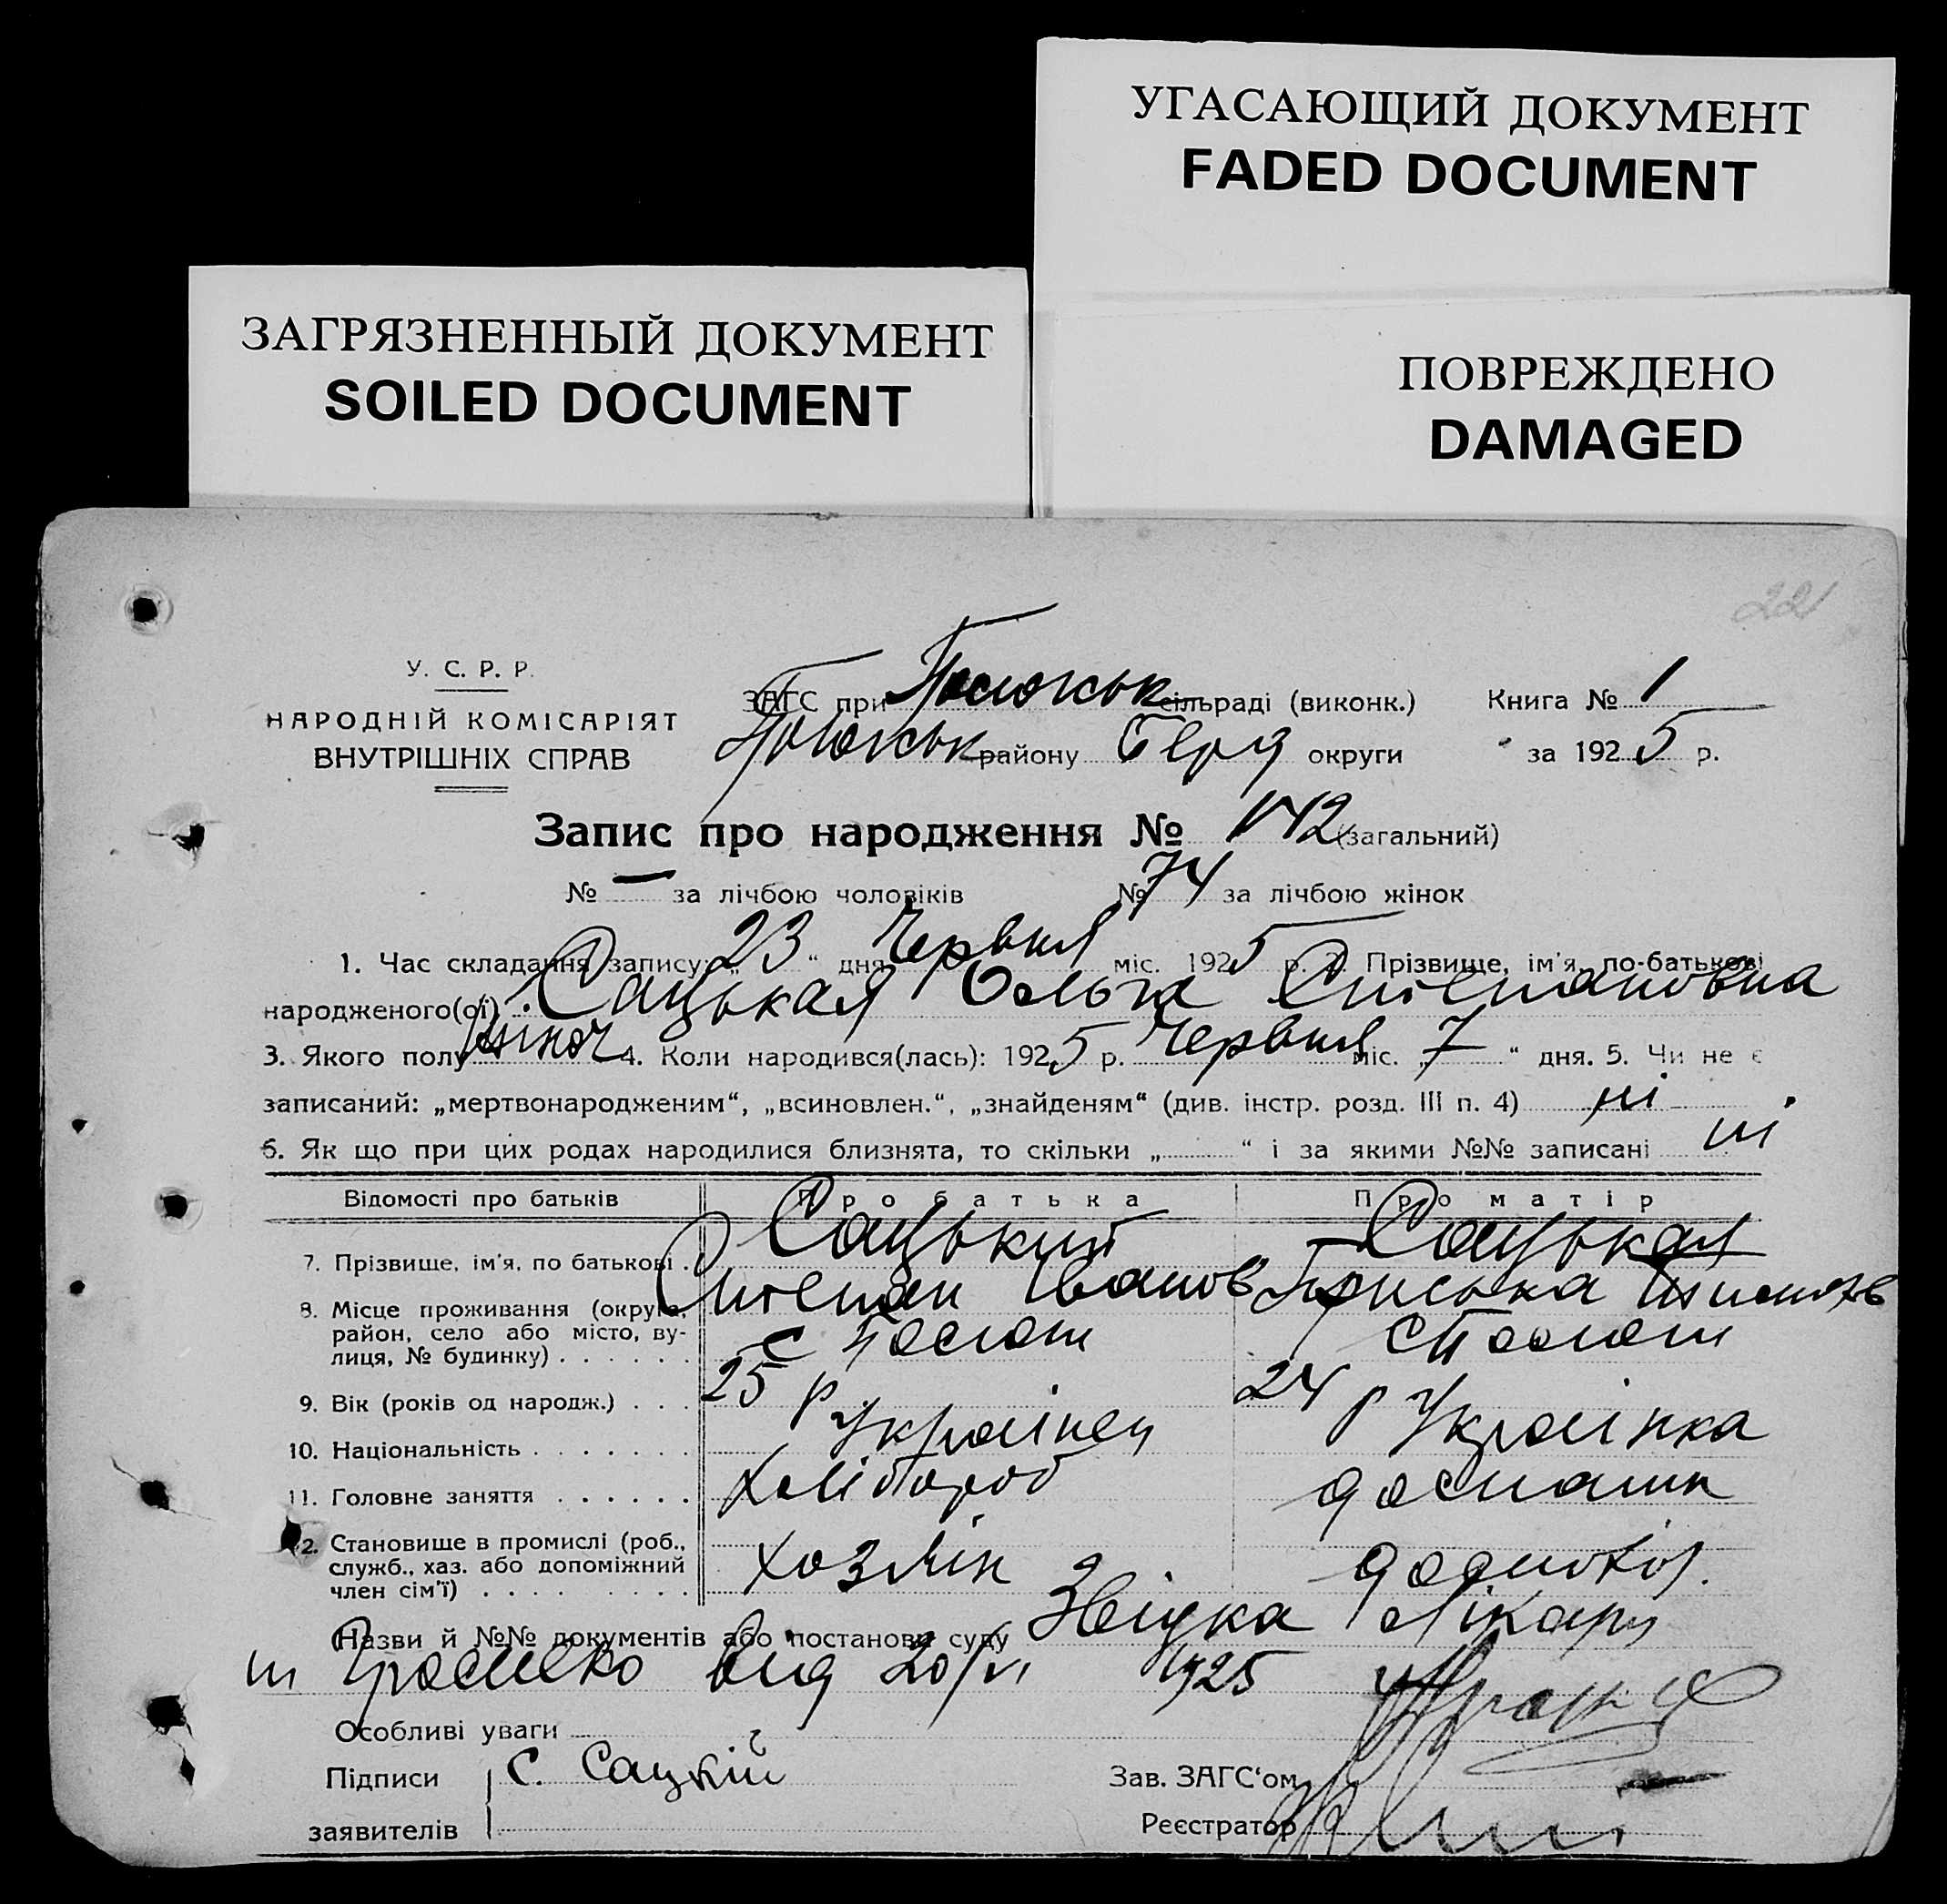 УГАСАЮЩИЙ ДОКУМЕНТ
FADED DOCUMENT
ЗАГРЯЗНЕННЫЙ ДОКУМЕНТ
SOILED DOCUMENT
ПОВРЕЖДЕНО
DAMAGED
22
У. С. Р. Р.
НАРОДНІЙ КОМІСАРІЯТ
ВНУТРІШНІХ СПРАВ
ЗАГС при сільраді (виконк.) Книга № 1
району Берд округи за 1925 р.
Запис про народження № 142 (загальний)
№ — за лічбою чоловіків № 74 за лічбою жінок
1. Час складання запису: „23“ дня Червня міс. 1925 р. 2. Прізвище, ім'я, по-батькові
народженого(ої) Сацькая Ольга Степановна
3. Якого полу жіноч 4. Коли народився(лась): 1925 р. Червня міс. „7“ дня. 5. Чи не є
записаний: „мертвонародженим“, „всиновлен.“, „знайденям“ (див. інстр. розд. III п. 4) ні
6. Як що при цих родах народилися близнята, то скільки „ “ і за якими №№ записані ні
Відомості про батьків Про батька Про матір
7. Прізвище, ім'я, по батькові . Сацький Сацькая
Степан Іванов Приська
8. Місце проживання (округа, район, село або місто, ву-
лиця, № будинку) . . . . . . с Пологи с Пологи
9. Вік (років од народж.) . . . 25 р 24 р
10. Національність . . . . . . . Українец Українка
11. Головне заняття . . . . . . Хлібороб домашн
12. Становище в промислі (роб.,
служб., хаз. або допоміжний
член сім'ї) . . . . . . . . Хозяін
Назви й №№ документів або постанови суду Звідка Лікаря
від 20/VI 1925
Особливі уваги
Підписи С. Сацкій Зав. ЗАГС'ом
заявителів Реєстратор